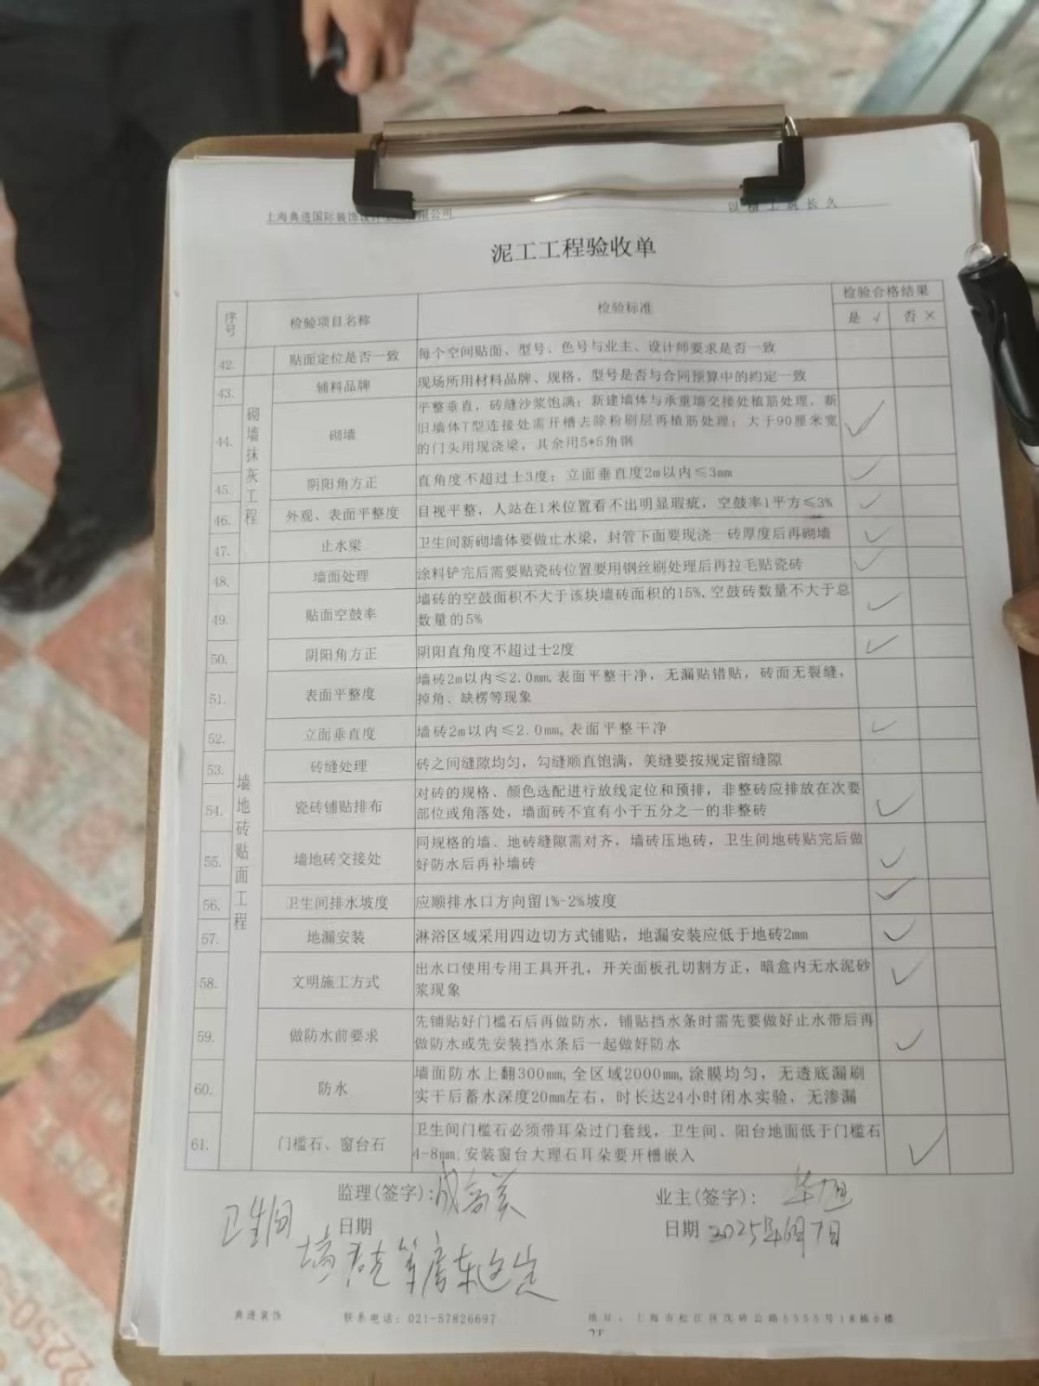 上海典进国际装饰设计 有限公司
以 精 工 筑 长 久
泥工工程验收单
序号 检验项目名称 检验标准 检验合格结果
是 √ 否 ×
42. 贴面定位是否一致 每个空间贴面、型号、色号与业主、设计师要求是否一致
砌墙抹灰工程
43. 辅料品牌 现场所用材料品牌、规格，型号是否与合同预算中的约定一致
44. 砌墙 平整垂直，砖缝沙浆饱满；新建墙体与承重墙交接处植筋处理，新
旧墙体T型连接处需开槽去除粉刷层再植筋处理；大于90厘米宽
的门头用现浇梁，其余用5*5角钢 √
45. 阴阳角方正 直角度不超过±3度；立面垂直度2m以内≤3mm √
46. 外观、表面平整度 目视平整，人站在1米位置看不出明显瑕疵，空鼓率1平方≤3% √
47. 止水梁 卫生间新砌墙体要做止水梁，封管下面要现浇一砖厚度后再砌墙 √
墙地砖贴面工程
48. 墙面处理 涂料铲完后需要贴瓷砖位置要用钢丝刷处理后再拉毛贴瓷砖 √
49. 贴面空鼓率 墙砖的空鼓面积不大于该块墙砖面积的15%，空鼓砖数量不大于总
数量的5% √
50. 阴阳角方正 阴阳直角度不超过±2度 √
51. 表面平整度 墙砖2m以内≤2.0mm，表面平整干净，无漏贴错贴，砖面无裂缝，
掉角、缺楞等现象
52. 立面垂直度 墙砖2m以内≤2.0mm，表面平整干净 √
53. 砖缝处理 砖之间缝隙均匀，勾缝顺直饱满，美缝要按规定留缝隙
54. 瓷砖铺贴排布 对砖的规格、颜色选配进行放线定位和预排，非整砖应排放在次要
部位或角落处，墙面砖不宜有小于五分之一的非整砖 √
55. 墙地砖交接处 同规格的墙、地砖缝隙需对齐，墙砖压地砖，卫生间地砖贴完后做
好防水后再补墙砖 √
56. 卫生间排水坡度 应顺排水口方向留1%-2%坡度 √
57. 地漏安装 淋浴区域采用四边切方式铺贴，地漏安装应低于地砖2mm √
58. 文明施工方式 出水口使用专用工具开孔，开关面板孔切割方正，暗盒内无水泥砂
浆现象 √
59. 做防水前要求 先铺贴好门槛石后再做防水，铺贴挡水条时需先要做好止水带后再
做防水或先安装挡水条后一起做好防水 √
60. 防水 墙面防水上翻300mm，全区域2000mm，涂膜均匀，无透底漏刷
实干后蓄水深度20mm左右，时长达24小时闭水实验，无渗漏
61. 门槛石、窗台石 卫生间门槛石必须带耳朵过门套线，卫生间、阳台地面低于门槛石
4-8mm，安装窗台大理石耳朵要开槽嵌入 √
监理(签字): 业主(签字):
日期 日期 2025年6月7日
卫生间
等房东这定
典进装饰 联系电话: 021-57826697 地址: 上海市松江区沈砖公路5555号18栋6楼
25